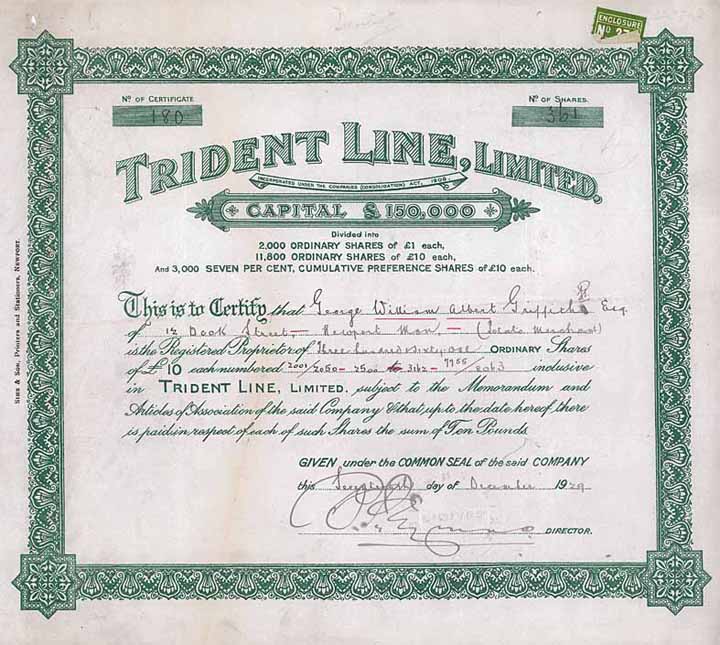 ENCLOSURE
No 27
No OF CERTIFICATE
180
No OF SHARES
361
TRIDENT LINE, LIMITED.
INCORPORATED UNDER THE COMPANIES (CONSOLIDATION) ACT, 1908.
CAPITAL £150,000
Divided into
2,000 ORDINARY SHARES of £1 each,
11,800 ORDINARY SHARES of £10 each,
And 3,000 SEVEN PER CENT, CUMULATIVE PREFERENCE SHARES of £10 each.
This is to Certify that George William Albert Griffiths Esq
of Dock Street, Newport Mon, (Potato Merchant)
is the Registered Proprietor of Three hundred & sixty one ORDINARY Shares
of £10 each numbered 2001/2050 - 2500 to 3162 - 7955/8063 inclusive
in TRIDENT LINE, LIMITED. subject to the Memorandum and
Articles of Association of the said Company & that up to the date hereof there
is paid in respect of each of such Shares the sum of Ten Pounds
GIVEN under the COMMON SEAL of the said COMPANY
this day of December 1929
DIRECTOR.
SIMS & SON, Printers and Stationers, NEWPORT.